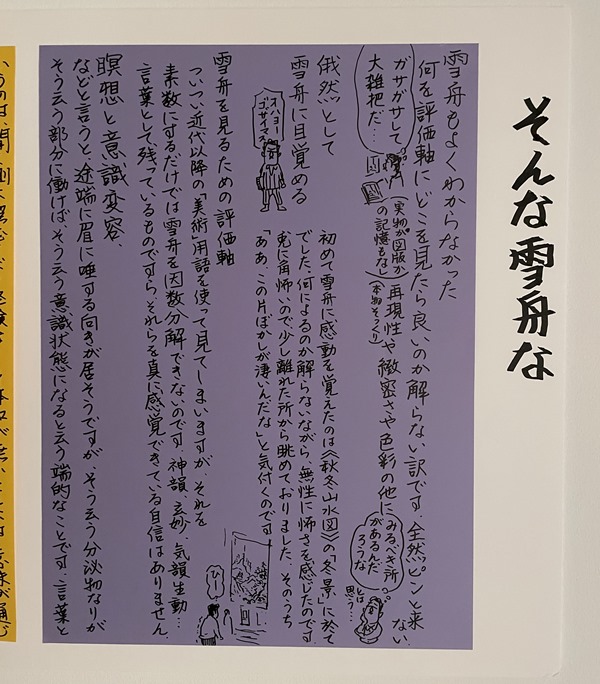 そんな雪舟な
雪舟もよくわからなかった
何を評価軸にどこを見たら良いのか解らない訳です。全然ピンと来ない。
ガサガサして
大雑把だ…
(実物か図版か
の記憶もなし)
再現性や緻密さや色彩の他に
(本物そっくり)
みるべき所
があるんだ
ろうな
とは
思う…
俄然として
雪舟に目覚める
オハヨー
ゴザイマス
初めて雪舟に感動を覚えたのは《秋冬山水図》の「冬景」に於て
でした。何によるのか解らないながら、無性に怖さを感じたのです。
兎に角怖いので少し離れた所から眺めておりました。そのうち
「ああ、この片ぼかしが凄いんだな」と気付くのです。
雪舟を見るための評価軸
ついつい近代以降の「美術」用語を使って見てしまいますが、それを
素数にするだけでは雪舟を因数分解できないのです。神韻、玄妙、気韻生動…
言葉として残っているものですら、それらを真に感覚できている自信はありません。
瞑想と意識変容、
などと言うと途端に眉に唾する向きが居そうですが、そう云う分泌物なりが
そう云う部分に働けばそう云う意識状態になると云う端的なことです。言葉と